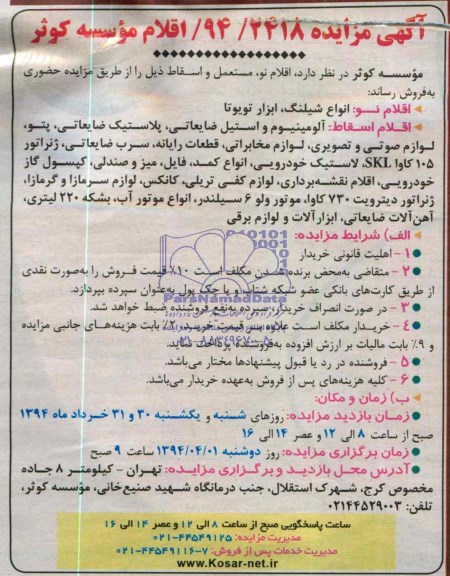 آگهی مزایده ۲۴۱۸/ ۹۴/ اقلام مؤسسه کوثر
مؤسسه کوثر در نظر دارد، اقلام نو، مستعمل و اسقاط ذیل را از طریق مزایده حضوری
به‌فروش رساند:
اقلام نو: انواع شیلنگ، ابزار تویوتا
اقلام اسقاط: آلومینیوم و استیل ضایعاتی، پلاستیک ضایعاتی، پتو،
لوازم صوتی و تصویری، لوازم مخابراتی، قطعات رایانه، سرب ضایعاتی، ژنراتور
۱۰۵ کاوا SKL، لاستیک خودرویی، انواع کمد، فایل، میز و صندلی، کپسول گاز
خودرویی، اقلام نقشه‌برداری، لوازم کفی تریلی، کانکس، لوازم سرمازا و گرمازا،
ژنراتور دیترویت ۷۳۰ کاوا، موتور ولو ۶ سیلندر، انواع موتور آب، بشکه ۲۲۰ لیتری،
آهن‌آلات ضایعاتی، ابزارآلات و لوازم برقی
الف) شرایط مزایده:
۱- اهلیت قانونی خریدار
۲- متقاضی به‌محض برنده شدن مکلف است ۱۰٪ قیمت فروش را به‌صورت نقدی
از طریق کارت‌های بانکی عضو شبکه شتاب و یا چک پول به‌عنوان سپرده بپردازد.
۳- در صورت انصراف خریدار، سپرده به‌نفع فروشنده ضبط خواهد شد.
۴- خریدار مکلف است علاوه بر قیمت خرید، ۷٪ بابت هزینه‌های جانبی مزایده
و ۹٪ بابت مالیات بر ارزش افزوده به‌فروشنده پرداخت نماید.
۵- فروشنده در رد یا قبول پیشنهادها مختار می‌باشد.
۶- کلیه هزینه‌های پس از فروش به‌عهده خریدار می‌باشد.
ب) زمان و مکان:
زمان بازدید مزایده: روزهای شنبه و یکشنبه ۳۰ و ۳۱ خرداد ماه ۱۳۹۴
صبح از ساعت ۸ الی ۱۲ و عصر ۱۴ الی ۱۶
زمان برگزاری مزایده: روز دوشنبه ۱۳۹۴/۰۴/۰۱ ساعت ۹ صبح
آدرس محل بازدید و برگزاری مزایده: تهران - کیلومتر ۸ جاده
مخصوص کرج، شهرک استقلال، جنب درمانگاه شهید صنیع‌خانی، مؤسسه کوثر،
تلفن: ۰۲۱۴۴۵۲۹۰۰۳
ساعت پاسخگویی صبح از ساعت ۸ الی ۱۲ و عصر ۱۴ الی ۱۶
مدیریت مزایده: ۴۴۵۴۹۱۲۵-۰۲۱
مدیریت خدمات پس از فروش: ۷-۴۴۵۴۹۱۱۶-۰۲۱
www.Kosar-net.ir
ParsNamadData
۰۲۱-۸۸۳۴۹۶۷۰-۵